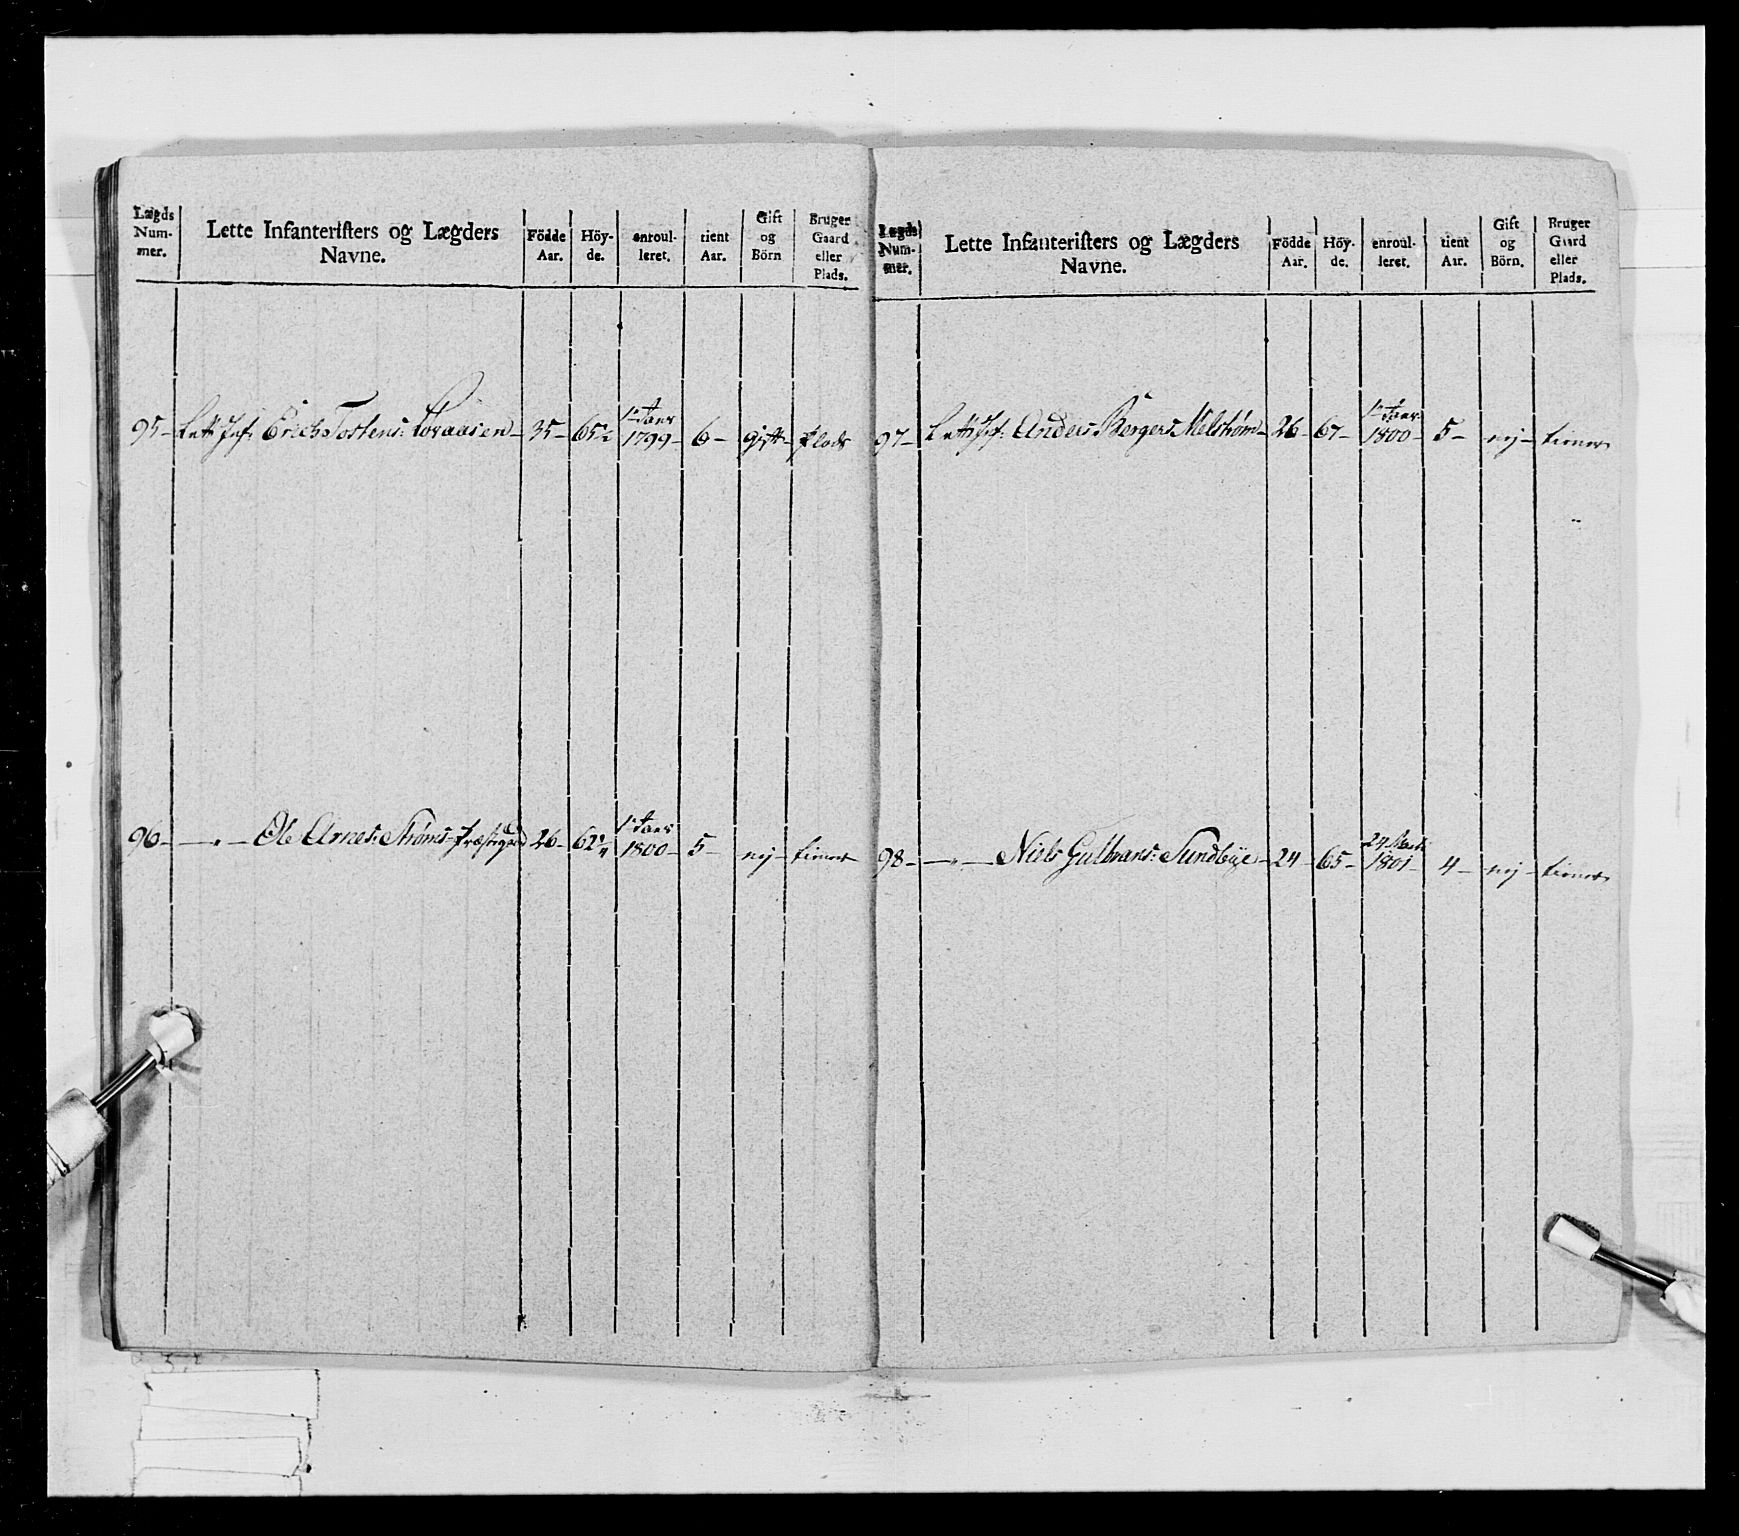 Lægds Num- mer. | Lette Infanterister og Lægders Navne. | Födde Aar. | Höy- de. | enroul- leret. | tient Aar. | Gift og Börn | Bruger Gaard eller Plads.
95 - Lett Inf: Erich Tostens: - 35 - 65 1/2 - 1te Janr 1799 - 6 - gift - Plads
96 - " - Ole Arnes: Strøms Præstegrd - 26 - 62 - 1te Janr 1800 - 5 - nej - tiener
Lægds Num- mer. | Lette Infanterister og Lægders Navne. | Födde Aar. | Höy- de. | enroul- leret. | tient Aar. | Gift og Börn. | Bruger Gaard eller Plads.
97 - Lett Inf: Anders Børgers Melstrøm - 26 - 67 - 1te Janr 1800 - 5 - nej - tiener
98 - " - Niels Gulbrans: Sundbÿe - 24 - 65 - 24 1801 - 4 - nej - tiener